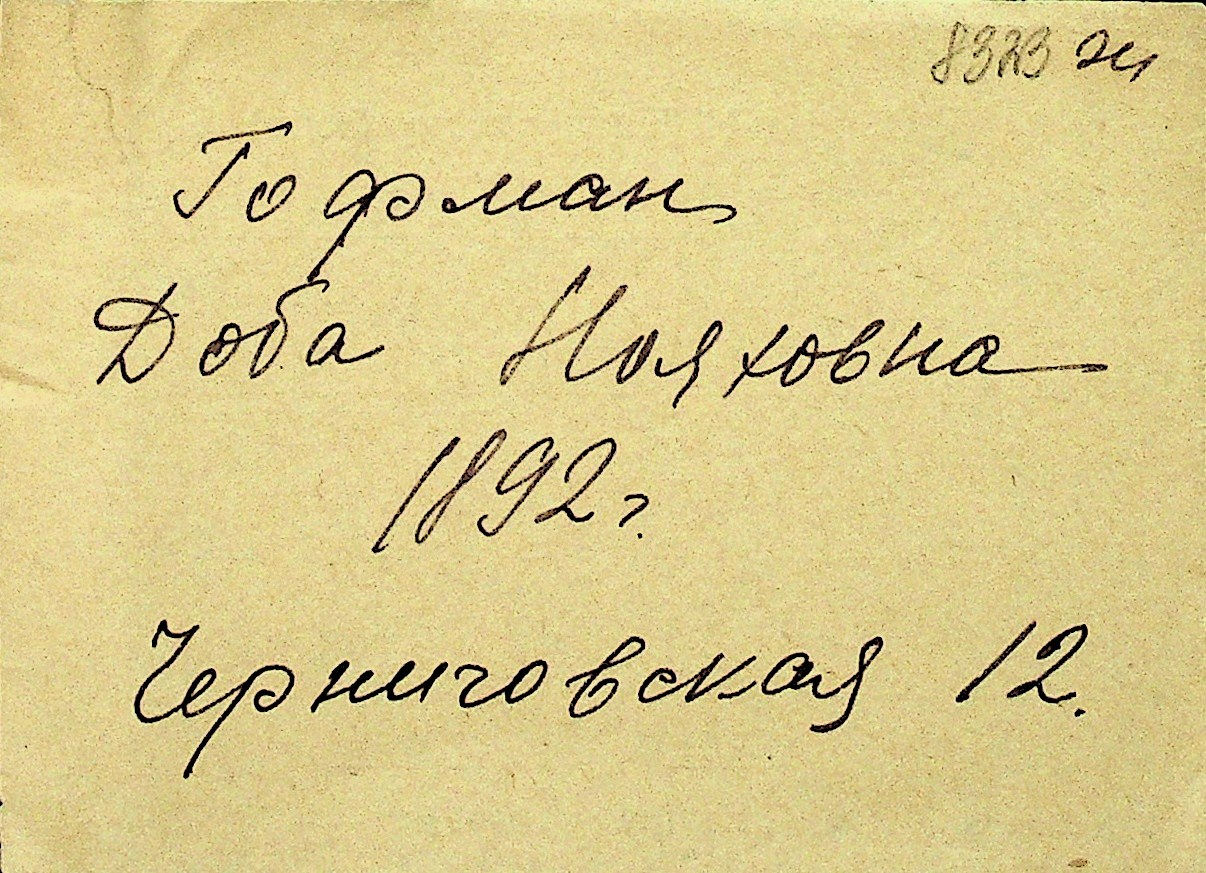 8323 ж
Гофман
Доба Нояховна
1892 г.
Черниговская 12.